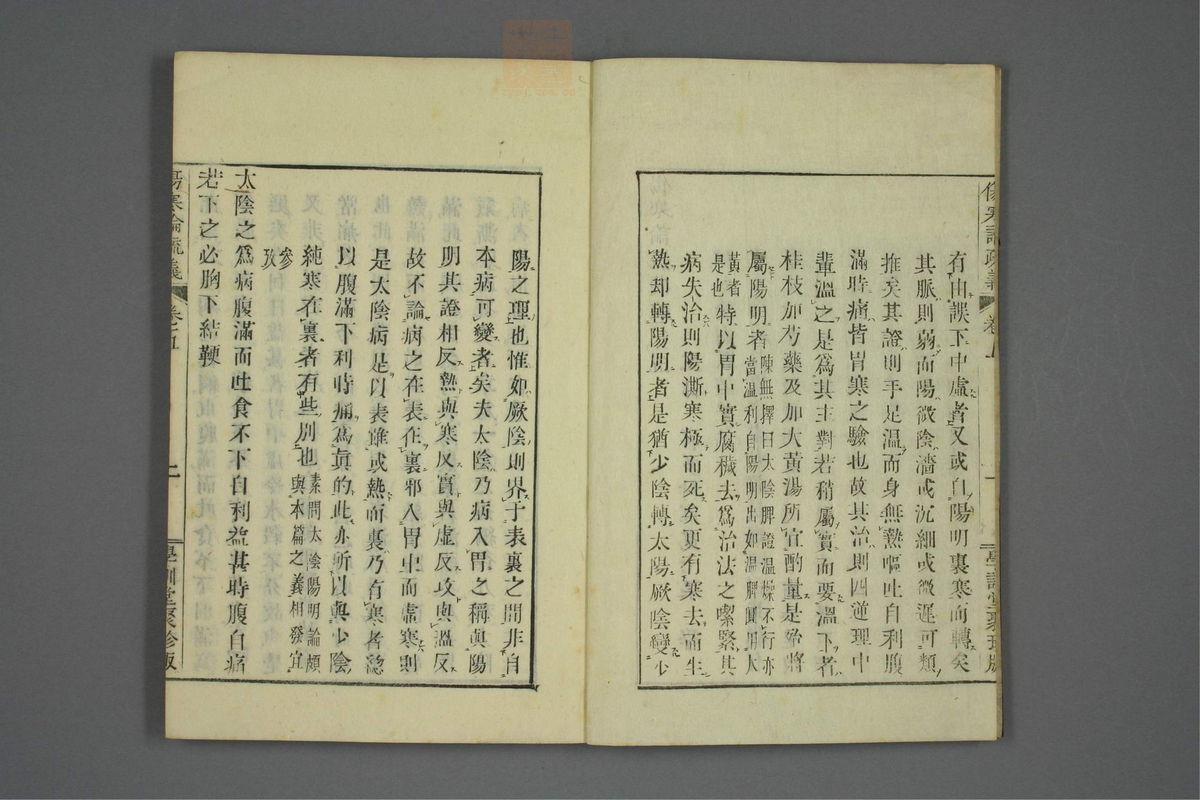 有由誤下中虛者又或自陽明裏寒而轉矣
其脈則弱而陽微陰濇或沉細或微遲可類
推矣其證則手足温而身無熱嘔吐自利腹
滿時痛皆胃寒之驗也故其治則四逆理中
輩溫之是爲其主對若稍屬實而要溫下者
桂枝加芍藥及加大黃湯所宜酌量是殆將
屬陽明者陳無擇曰太陰脾證温燥不行亦
當溫利自陽明出如溫脾圓用大
黃者是也特以胃中實腐穢去爲治法之㗫緊其
病失治則陽澌寒極而死矣更有寒去而生
熱却轉陽明者是猶少陰轉太陽厥陰變少
陽之理也惟如厥陰則界于表裏之間非自
本病可變者矣夫太陰乃病入胃之稱與陽
明其證相反熱與寒反實與虛反攻與溫反
故不論病之在表在裏邪入胃中而虛寒則
是太陰病是以表雖或熱而裏乃有寒者總
以腹滿下利時痛爲眞的此亦所以與少陰
純寒在裏者有些別也素問太陰陽明論頗
與本篇之義相發宜
參攷
太陰之爲病腹滿而吐食不下自利益甚時腹自痛
若下之必胸下結鞕
傷寒論疏義 卷五 一 學訓堂聚珍版
傷寒論疏義 卷五 二 學訓堂聚珍版